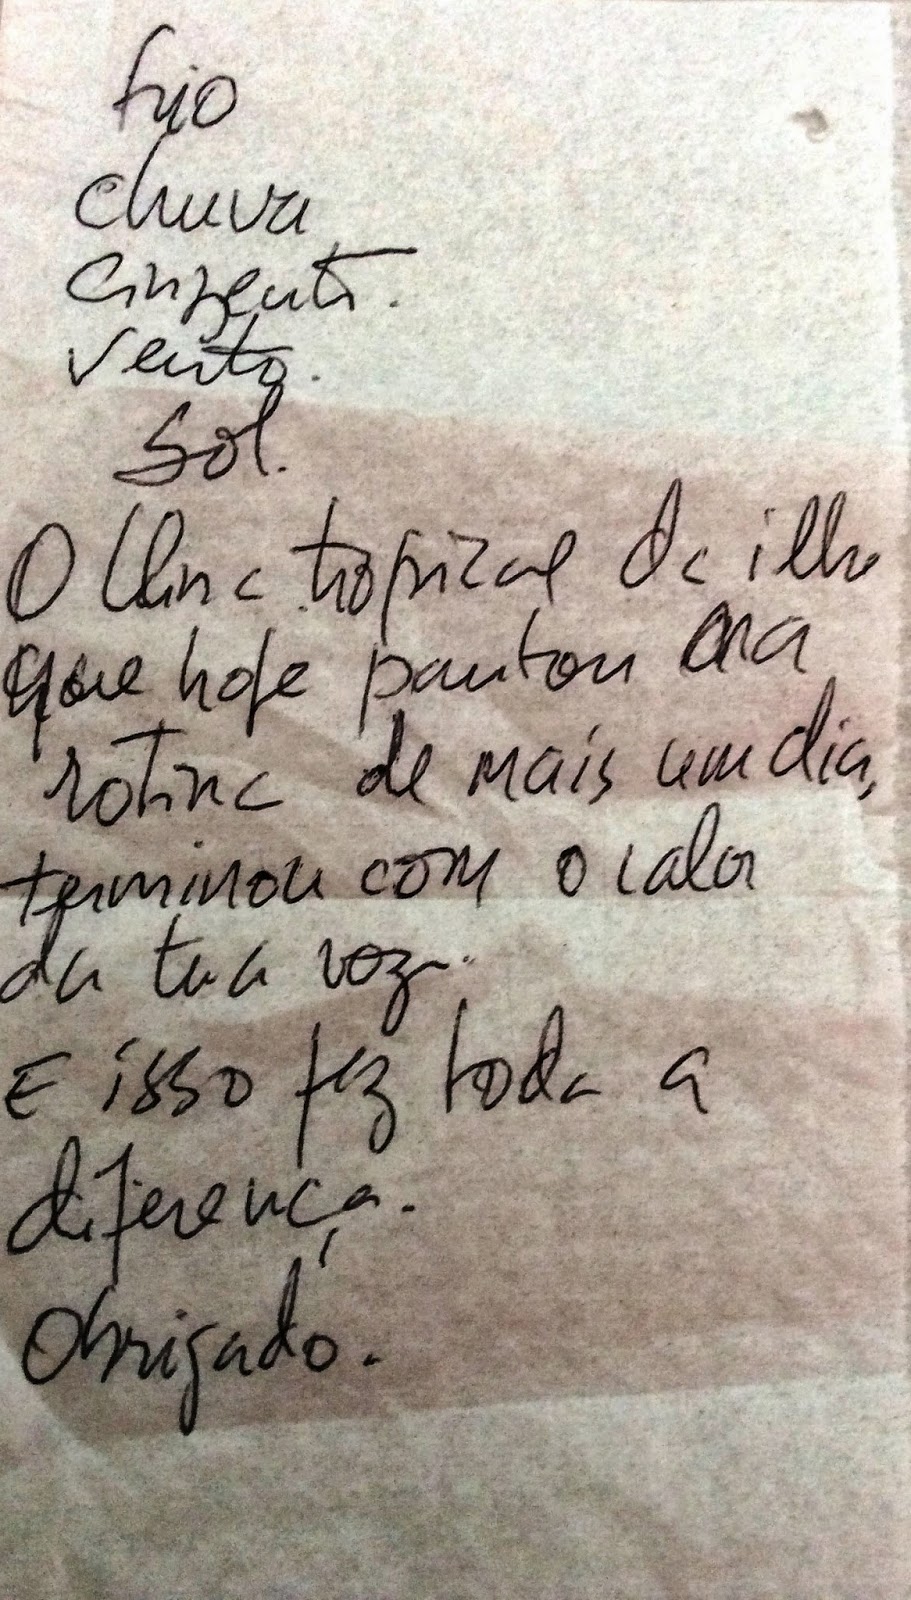 frio
chuva
cinzento.
vento.
sol.
O clima tropical da ilha
que hoje pautou a
rotina de mais um dia,
terminou com o calor
da tua voz.
E isso fez toda a
diferença.
Obrigado.